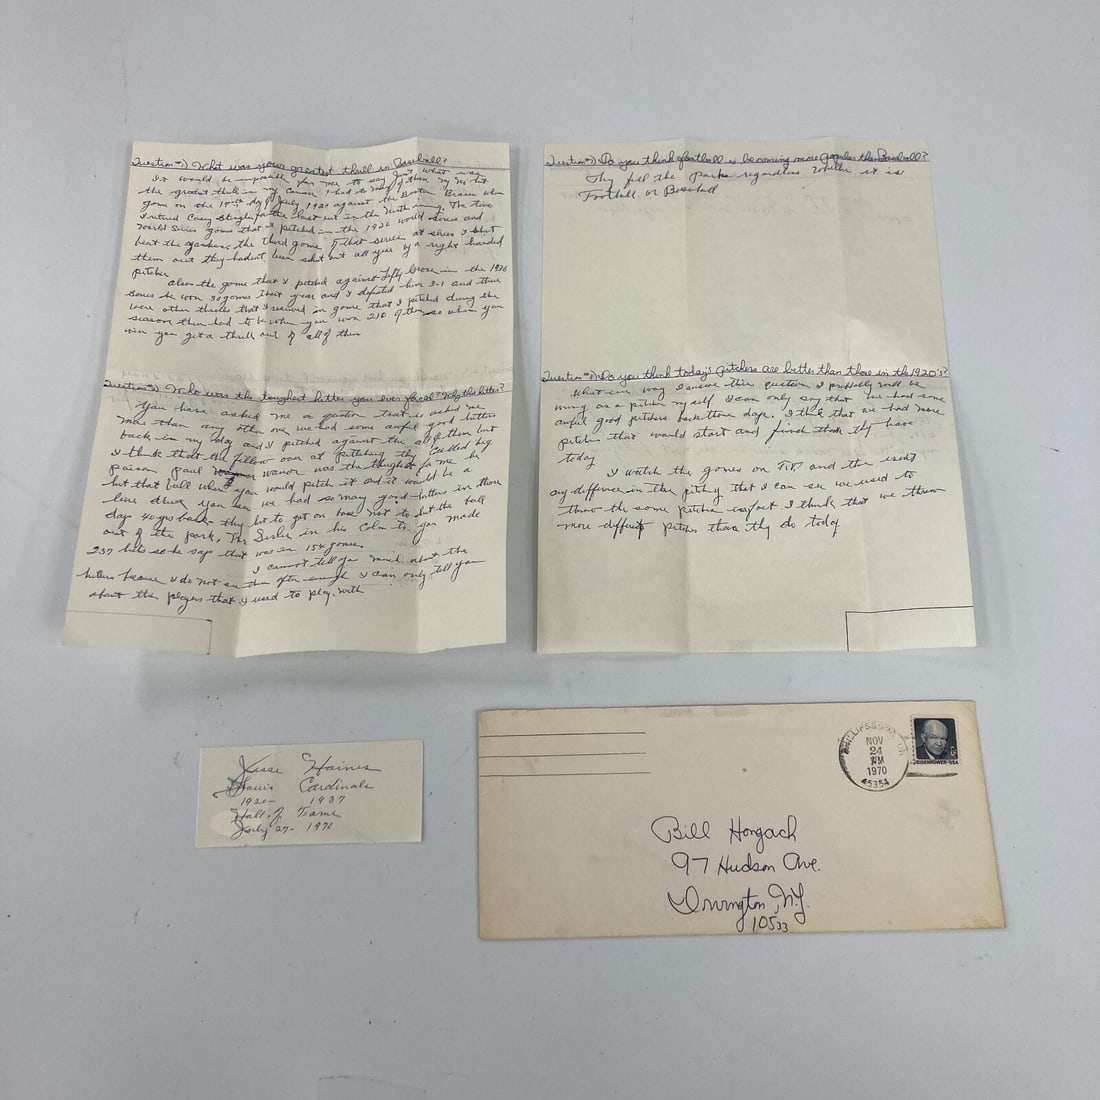 Question #1) What was your greatest thrill in Baseball?
It would be impossible for me to say just what was
the greatest thrill in my career I had to of them my No hit
game on the 17th day of July 1924 against the Boston Braves when
I retired Casey Stengle for the last out in the Ninth inning. The two
World Series games that I pitched in the 1926 World Series and
beat the Yankees, the third game of that series at I shut
them out they hadent been shut out all year by a right handed
pitcher
Also the game that I pitched against Lefty Grove in the 1930
Series he won 30 games that year and I defeted him 3-1 and there
were other thrills that I received in game that I pitched during the
season, there had to be when you won 210 of them so when you
win you get a thrill out of all of them
Question #2) Who was the toughest hitter you ever faced? Why this hitter?
You have asked me a question that is asked me
more than any other one we had some awful good hitters
back in my day and I pitched against the all of them but
I think that the fellow over at pittsburg they called big
poison paul waner was the toughest for me he
hit that ball where you would pitch it and it would be a
line drive, you see we had so many good hitters in those
days 40 yrs back they hit to get on base not to hit the ball
out of the park. Mr Sisler in his made
257 hits so he says that was in 154 games
I cannot tell you much about the
hitters because I do not see them often enough I can only tell you
about the players that I used to play with
Question #3) Do you think football is becoming more popular than Baseball?
They fill the Parks regardless whether it is
Football or Baseball
Question #4) Do you think today's pitchers are better than those in the 1920's?
What ever way I answer this question I probably will be
wrong as a pitcher my self I can only say that we had some
awful good pitchers back those days. I think that we had more
pitchers that would start and finish than they have
today
I watch the games on T.V. and the isent
any difference in the pitching that I can see we used to
throw the same pitches infact I think that we threw
more different pitches than they do today
Jesse Haines
St Louis Cardinals
1920- 1937
Hall of Fame
July 27- 1970
PHILLIPSBURG, OH.
NOV
24
PM
1970
45354
EISENHOWER·USA
Bill Horgach
97 Hudson Ave.
Irvington, N.Y.
10533